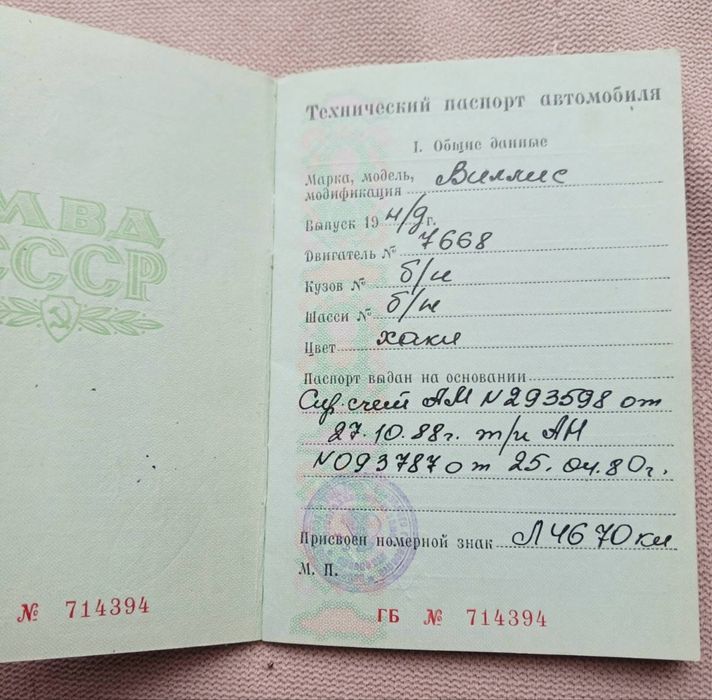 МВД
СССР
№ 714394
Технический паспорт автомобиля
I. Общие данные
Марка, модель, Виллис
модификация
Выпуск 19 н/д г.
Двигатель № 7668
Кузов № б/н
Шасси № б/н
Цвет хаки
Паспорт выдан на основании
Спр. счет АМ N 293598 от
27.10.88г. т/п АН
N 093787 от 25.04.80г.
Присвоен номерной знак Л4670ки
М. П.
ГБ № 714394